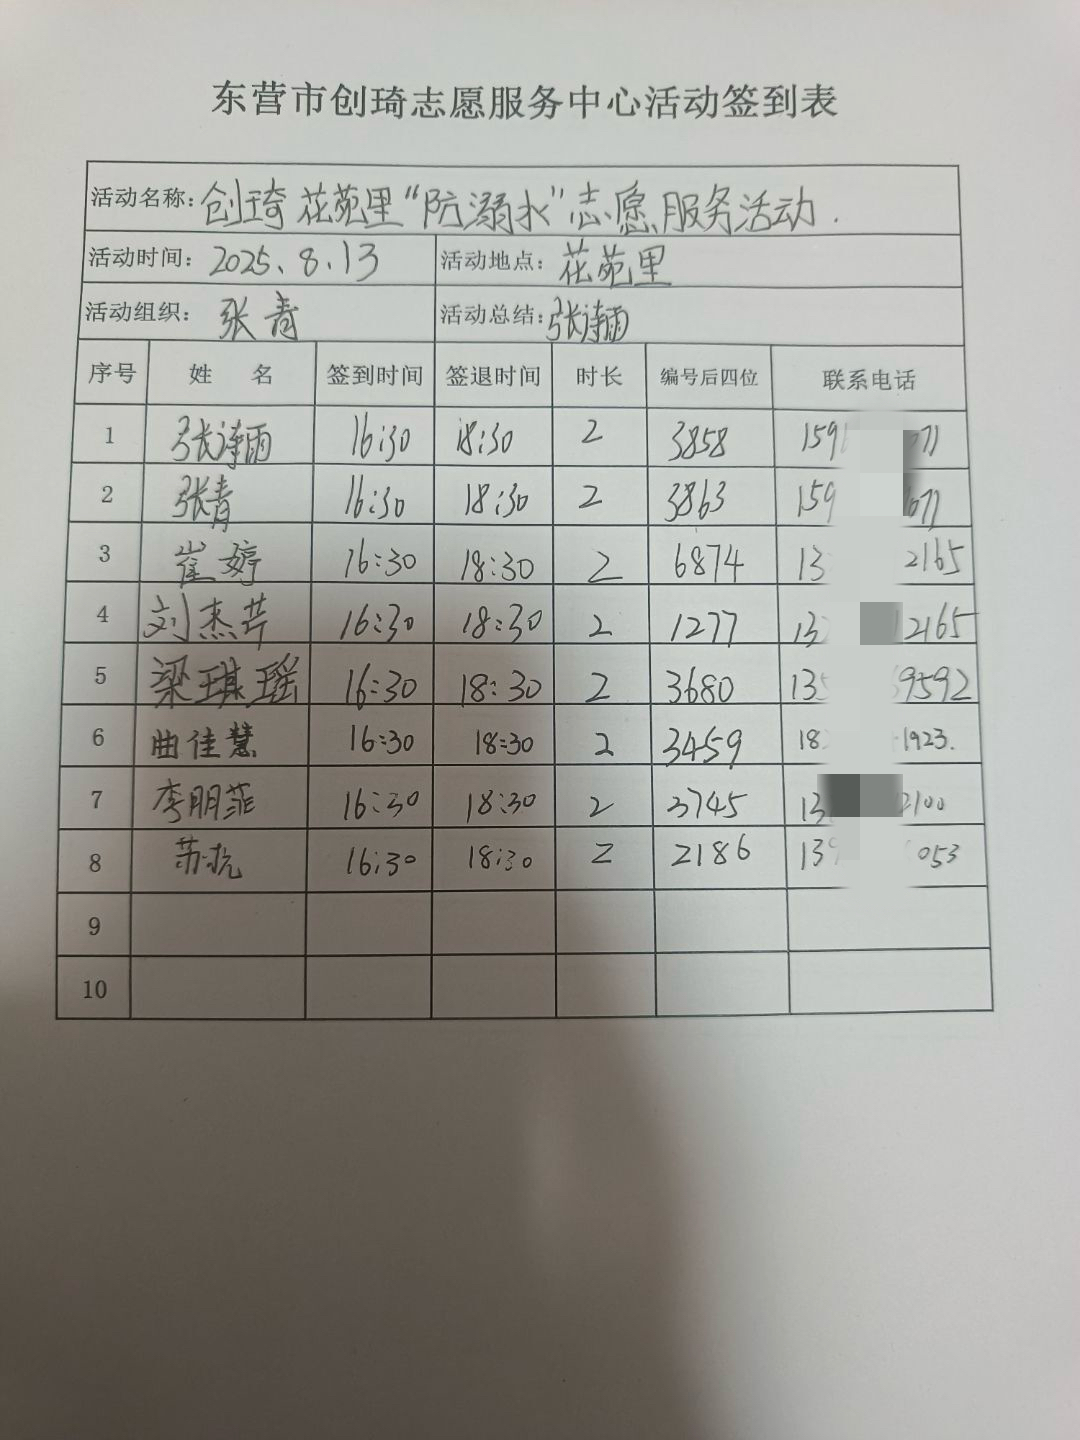 东营市创琦志愿服务中心活动签到表
活动名称: 创琦花苑里“防溺水”志愿服务活动.
活动时间: 2025.8.13 活动地点: 花苑里
活动组织: 张青 活动总结: 张诗雨
序号 姓名 签到时间 签退时间 时长 编号后四位 联系电话
1 张诗雨 16:30 18:30 2 3858 159
2 张青 16:30 18:30 2 3863 159
3 崔婷 16:30 18:30 2 6874 13 2165
4 刘杰芹 16:30 18:30 2 1277 13 2165
5 梁琪瑶 16:30 18:30 2 3680 13 9592
6 曲佳慧 16:30 18:30 2 3459 18 1923.
7 李朋菲 16:30 18:30 2 3745 13 2100
8 苏 16:30 18:30 2 2186 139 053
9
10